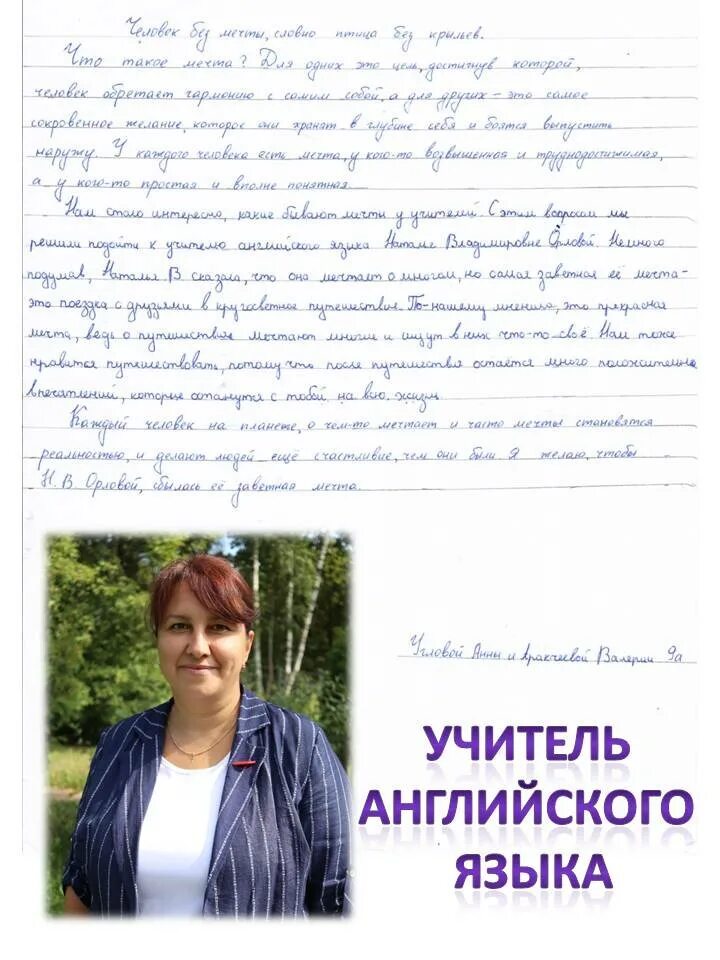 Человек без мечты, словно птица без крыльев.
Что такое мечта? Для одних это цель, достигнув которой,
человек обретает гармонию с самим собой, а для других – это самое
сокровенное желание, которое они хранят в глубине себя и боятся выпустить
наружу. У каждого человека есть мечта, у кого-то возвышенная и труднодостижимая,
а у кого-то простая и вполне понятная.
Нам стало интересно, какие бывают мечты у учителей. С этим вопросом мы
решили подойти к учителю английского языка Наталье Владимировне Орловой. Немного
подумав, Наталья В. сказала, что она мечтает о многом, но самая заветная её мечта-
это поездка с друзьями в кругосветное путешествие. По-нашему мнению, это прекрасная
мечта, ведь о путешествии мечтают многие и ищут в них что-то своё. Нам тоже
нравится путешествовать, потому что после путешествия остаётся много положительных
впечатлений, которые останутся с тобой на всю жизнь.
Каждый человек на планете, о чем-то мечтает и часто мечты становятся
реальностью, и делают людей ещё счастливие, чем они были. Я желаю, чтобы
Н. В Орловой, сбылась её заветная мечта.
Угловой Анны и Аракчеевой Валерии 9а
УЧИТЕЛЬ
АНГЛИЙСКОГО
ЯЗЫКА